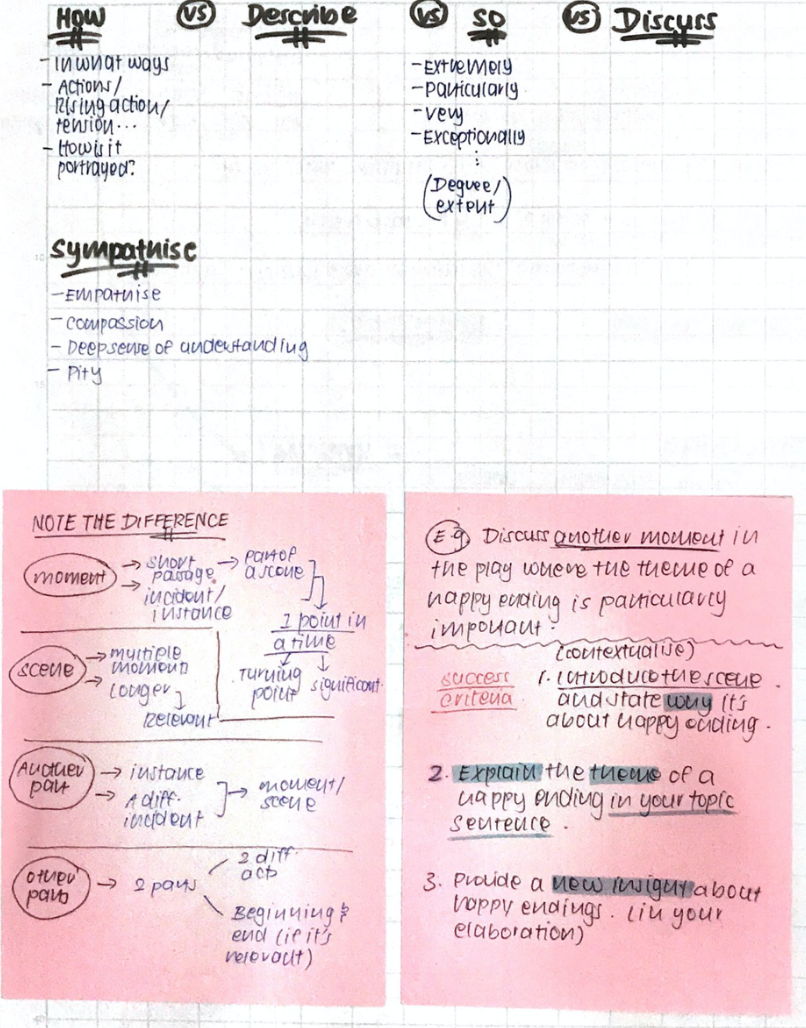 How vs Describe vs so vs Discuss
- In what ways
- Actions/
Rising action/
tension...
- How is it
portrayed?
- Extremely
- Particularly
- Very
- Exceptionally
⋮
(Degree/
extent)
Sympathise
- Empathise
- Compassion
- Deep sense of understanding
- Pity
NOTE THE DIFFERENCE
moment → short → part of
passage a scene
→ incident/
instance
1 point in
a time
turning
point
significant
scene → multiple
moments
→ longer
Relevant
Another
part
→ instance
→ A diff.
incident
→ moment/
scene
other
parts
→ 2 parts
2 diff.
acts
Beginning &
end (if it's
relevant)
E.g. Discuss another moment in
the play where the theme of a
happy ending is particularly
important.
(contextualise)
success
criteria
1. introduce the scene
and state why it's
about happy ending.
2. Explain the theme of a
happy ending in your topic
sentence.
3. Provide a new insight about
happy endings. (in your
elaboration)